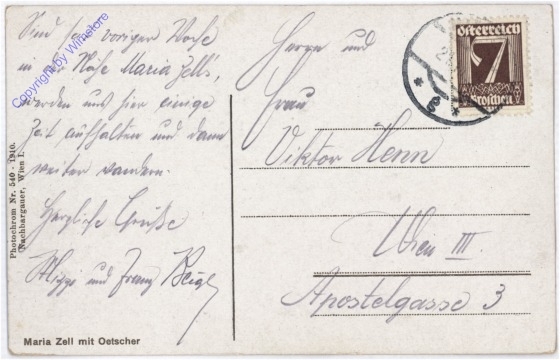 Sind seit voriger Woche
in der Nähe Maria Zell's,
werden uns hier einige
Zeit aufhalten und dann
weiter wandern.
Herzliche Grüße
und Franz
Herrn und
Frau
Viktor Henn
Wien III.
Apostelgasse 3
Österreich
7
Groschen
Copyright by Winstore
Photochrom Nr. 540 - 1910.
Nachbargauer, Wien I.
Maria Zell mit Oetscher